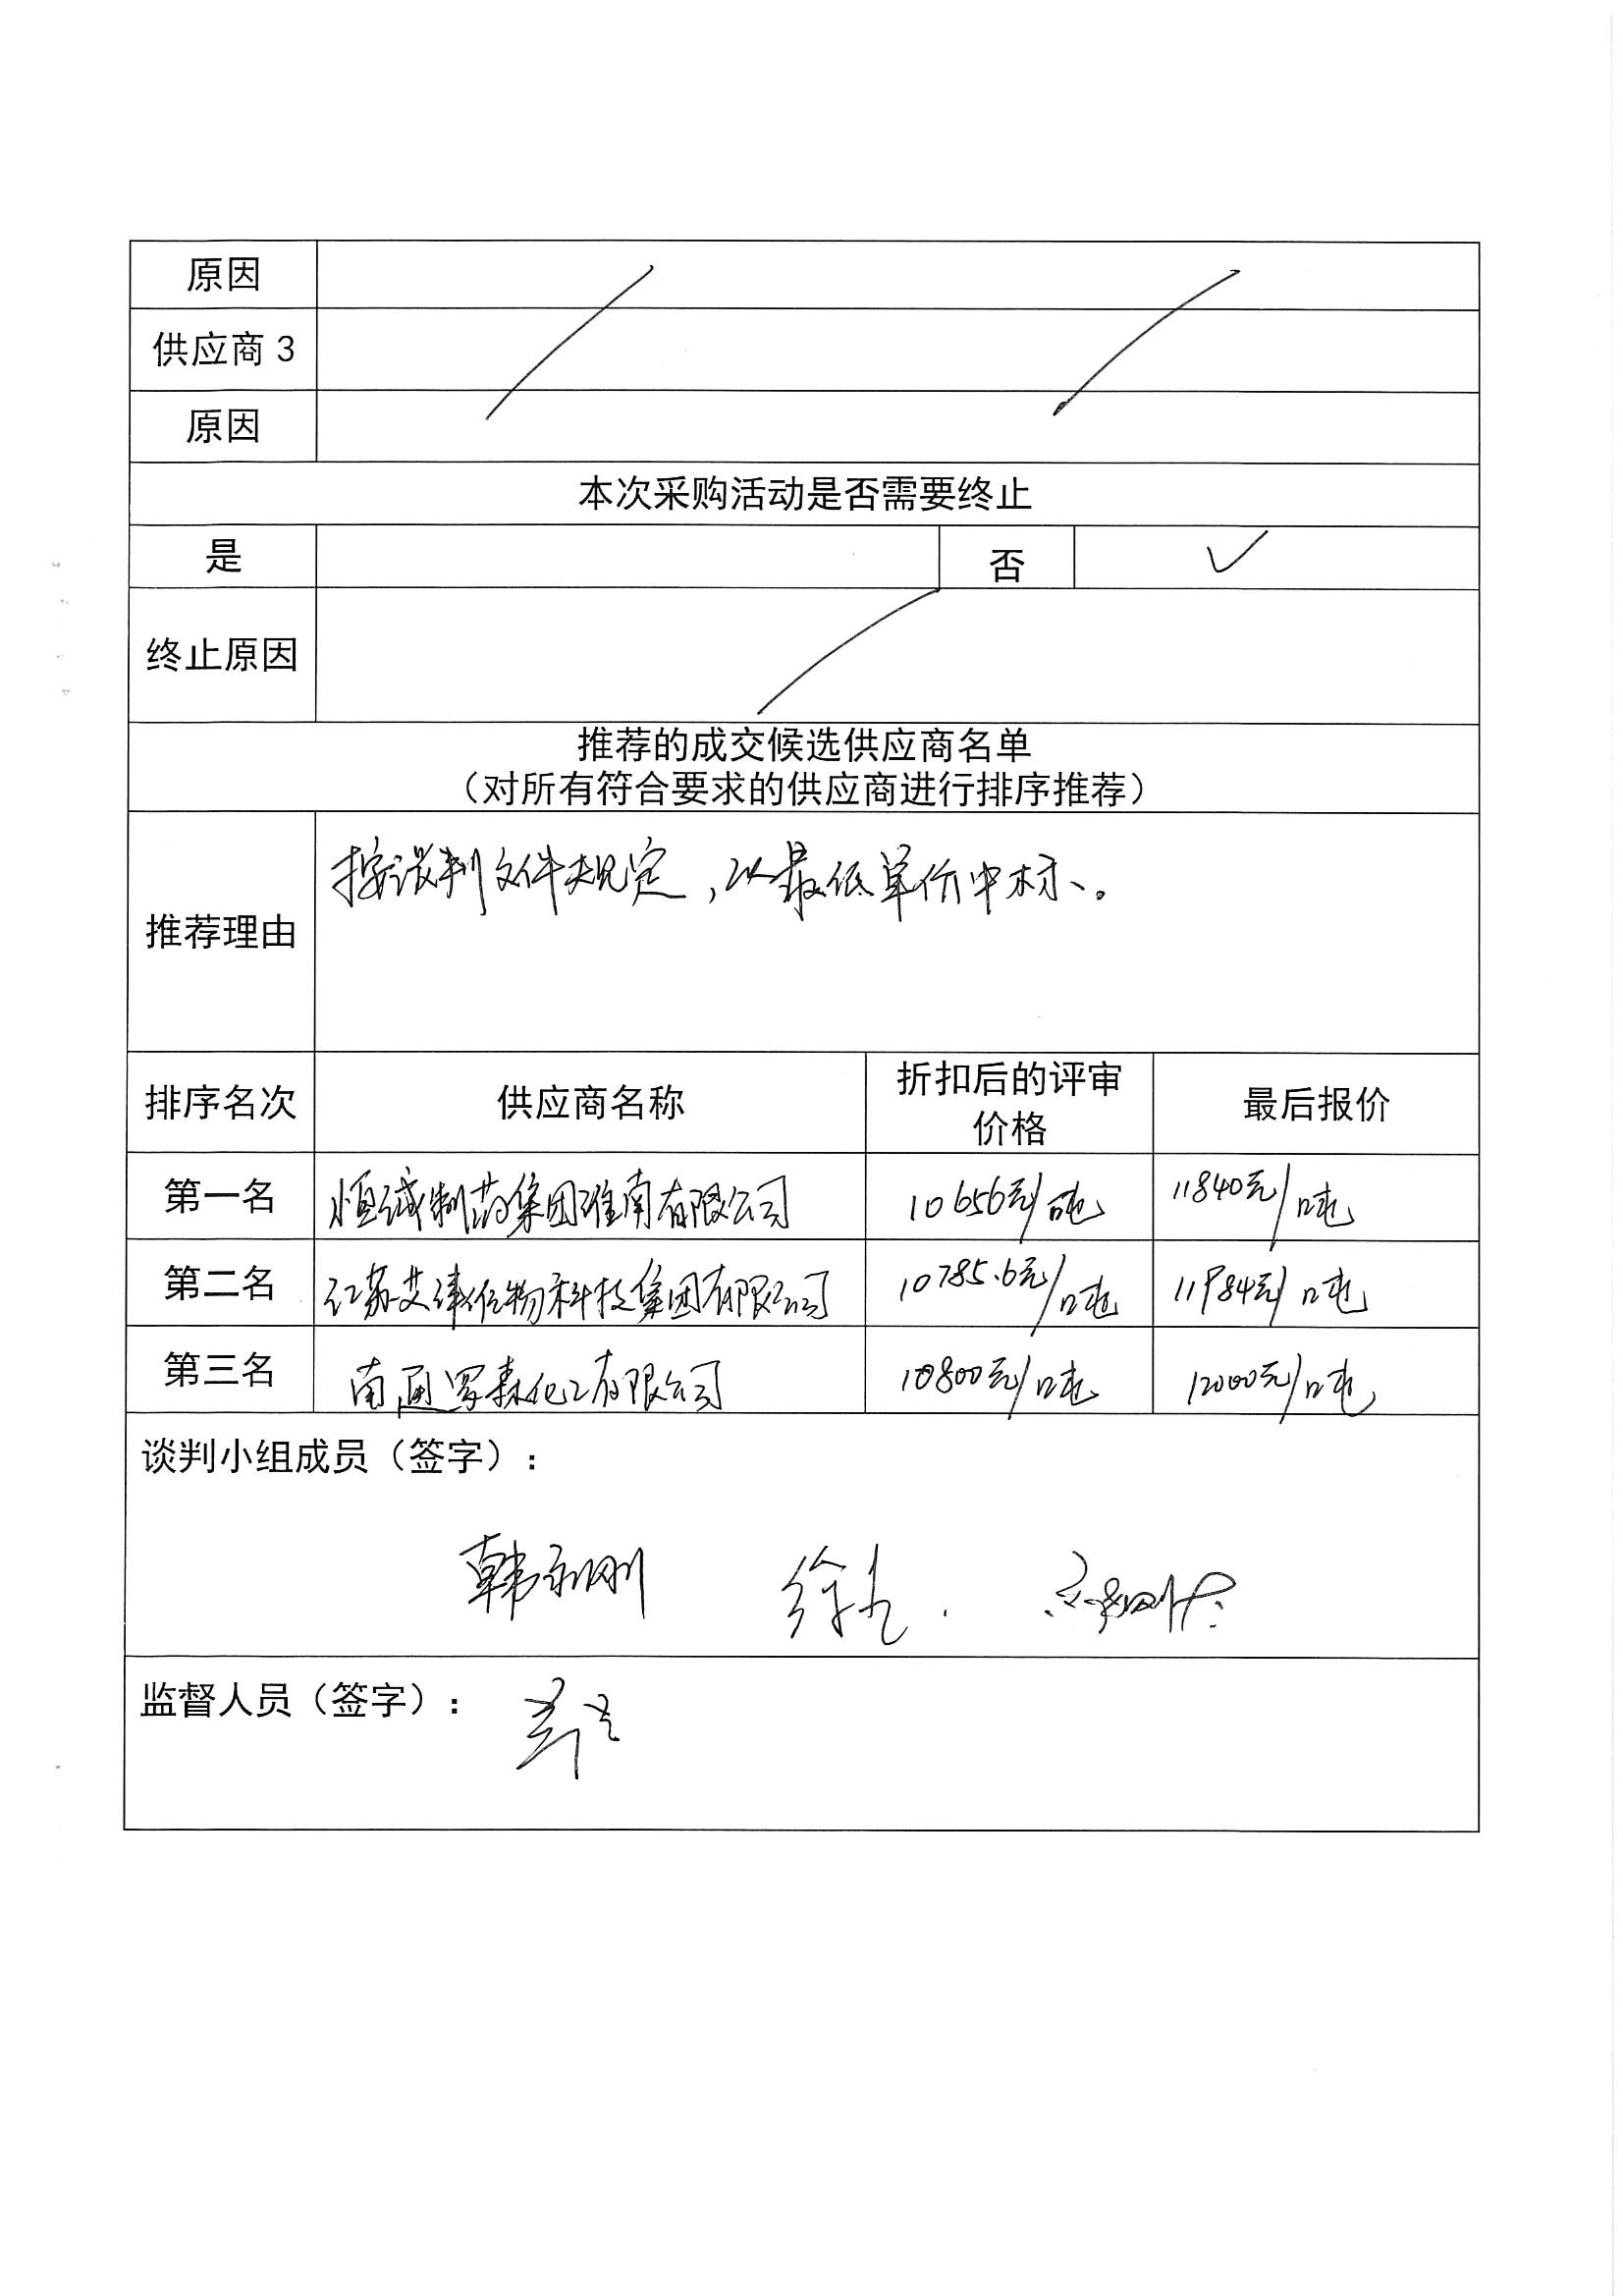 原因
供应商 3
原因
本次采购活动是否需要终止
是 否 ✓
终止原因
推荐的成交候选供应商名单
（对所有符合要求的供应商进行排序推荐）
推荐理由 按谈判文件规定，以最低单价中标。
排序名次 供应商名称 折扣后的评审价格 最后报价
第一名 恒诚制药集团淮南有限公司 10656元/吨 11840元/吨
第二名 江苏艾津作物科技集团有限公司 10785.6元/吨 11984元/吨
第三名 南通罗森化工有限公司 10800元/吨 12000元/吨
谈判小组成员（签字）：
韩 刚 徐
监督人员（签字）：